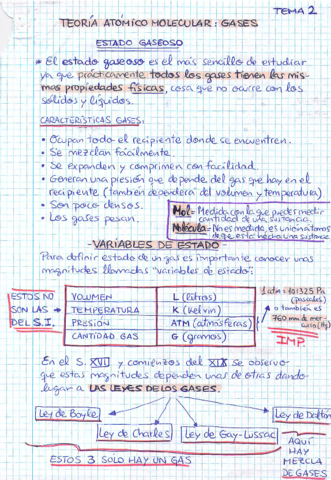 TEMA 2
TEORÍA ATÓMICO MOLECULAR: GASES
ESTADO GASEOSO
* El estado gaseoso es el más sencillo de estudiar
ya que prácticamente todos los gases tienen las mis-
mas propiedades físicas, cosa que no ocurre con los
sólidos y líquidos.
CARACTERÍSTICAS GASES:
• Ocupan todo el recipiente donde se encuentren.
• Se mezclan fácilmente.
• Se expanden y comprimen con facilidad.
• Generan una presión que depende del gas que hay en el
recipiente (también dependerá del volumen y temperatura)
• Son poco densos.
• Los gases pesan.
Mol = Medida con la que puedes medir
cantidad de una sustancia.
Molécula = No es medida, es union atomos
de que está hecha una sustancia
-VARIABLES DE ESTADO-
Para definir estado de un gas es importante conocer unas
magnitudes llamadas "variables de estado":
ESTOS NO
SON LAS →
DEL S.I.
VOLUMEN L (litros)
TEMPERATURA K (Kelvin)
PRESIÓN ATM (atmósferas)
CANTIDAD GAS G (gramos)
1 atm = 101325 Pa
(pascales)
o también es
760 mm de mer-
curio (Hg)
IMP
En el S. XVII y comienzos del XIX se observó
que estas magnitudes dependen unas de otras dando
lugar a LAS LEYES DE LOS GASES.
Ley de Boyle
Ley de Charles
Ley de Gay-Lussac
Ley de Dalton
ESTOS 3 SOLO HAY UN GAS
AQUÍ
HAY
MEZCLA
DE GASES